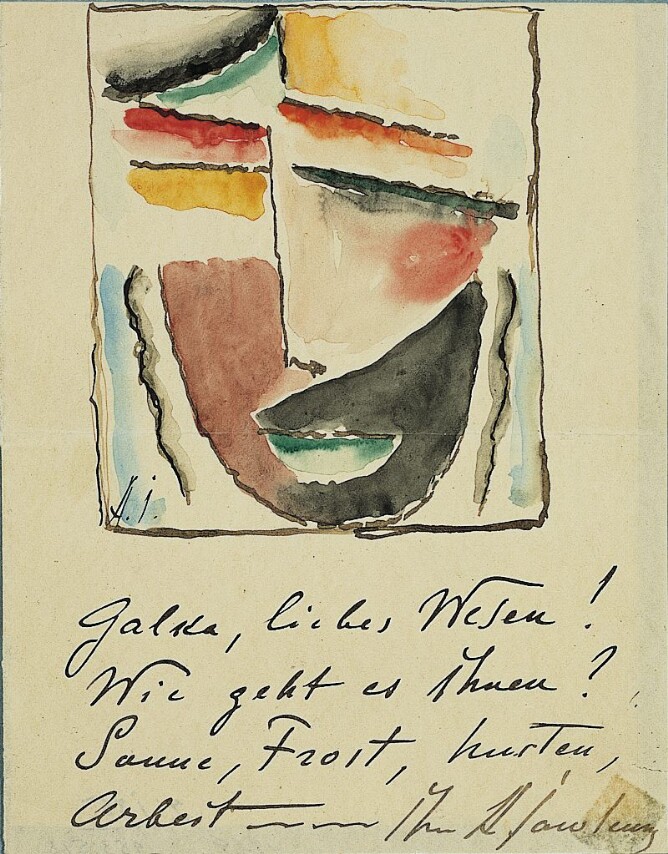 A.j.
Galka, liebes Wesen!
Wie geht es Ihnen?
Sonne, Frost, husten,
Arbeit — — — Ihr A Jawlensky